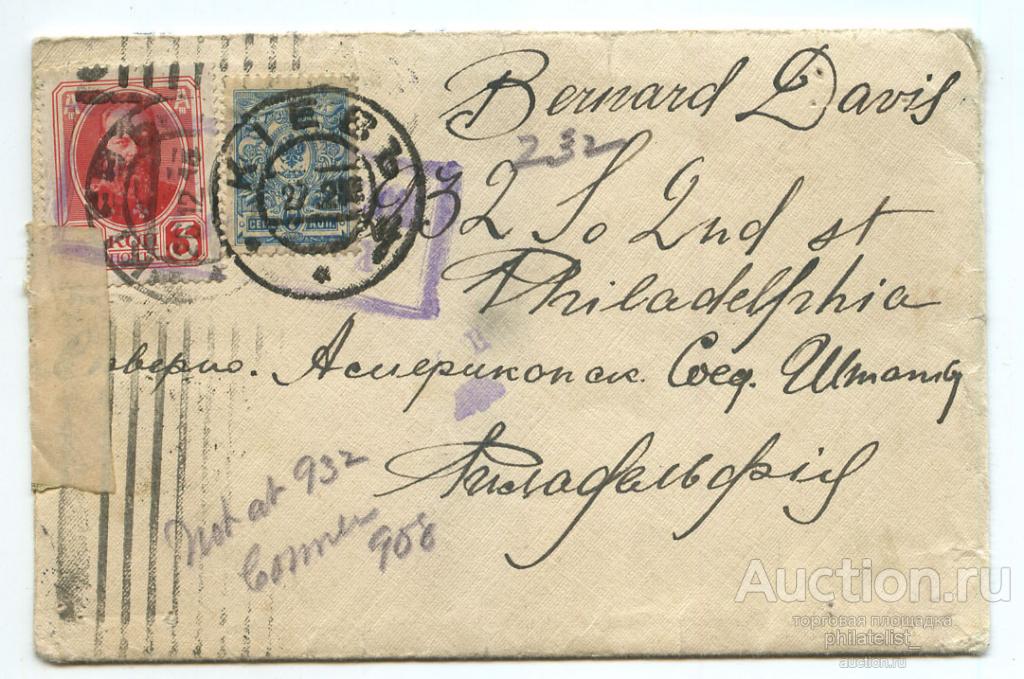 Bernard Davis
232
932 So 2nd st
Philadelphia
Америконск. Соед. Штаты
Филадельфія
Not at 932
Corner
908
КІЕВЪ
27.2.16
СЕМЬ КОП.
7
КОП
3
Auction.ru
торговая площадка
philatelist_
auction.ru